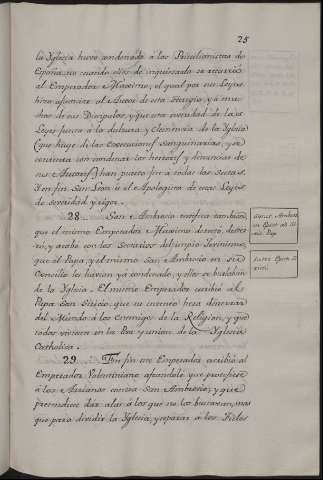 25
la Yglesia huvo condenado à los Priscilianistas de
España, ni cuando ellos de inquisicion se recurrió
al Emperador Maximo, el qual por sus Leyes
hizo ajusticiar al Autor de esta heregia y à mu-
chos de sus Dicipulos, y que esta severidad de las
Leyes junta à la dulzura y clemencia de la Yglesia
(que huye de las Execuciones sanguinarias, y se
contenta con condenar los herrores y denuncias de
sus Autores) han puesto fin à todas las Sectas.
En fin San Leon es el Apologista de unas Leyes
de severidad y rigor.
28. San Ambrosio testifica tambien
que el mismo Emperador Maximo destruyó, dester-
ró, y acabó con los Sectarios del impio Joviniano,
que el Papa, y el mismo San Ambrosio en su
Concilio les havian ya condenado, y ellos se burlaban
de la Yglesia. El mismo Emperador escribió al
Papa San Siricio, que su intento hera desterrar
del Mundo à los Enemigos de la Religion, y que
todos viviesen en la Paz y union de la Yglesia
Catholica.
29. En fin este Emperador escribió al
Emperador Valentiniano afeandole que protegiese
à los Arrianos contra San Ambrosio, y que
pretendiese dar alas à los que no las buscavan, mas
que para dividir la Yglesia, y separar à los Fieles